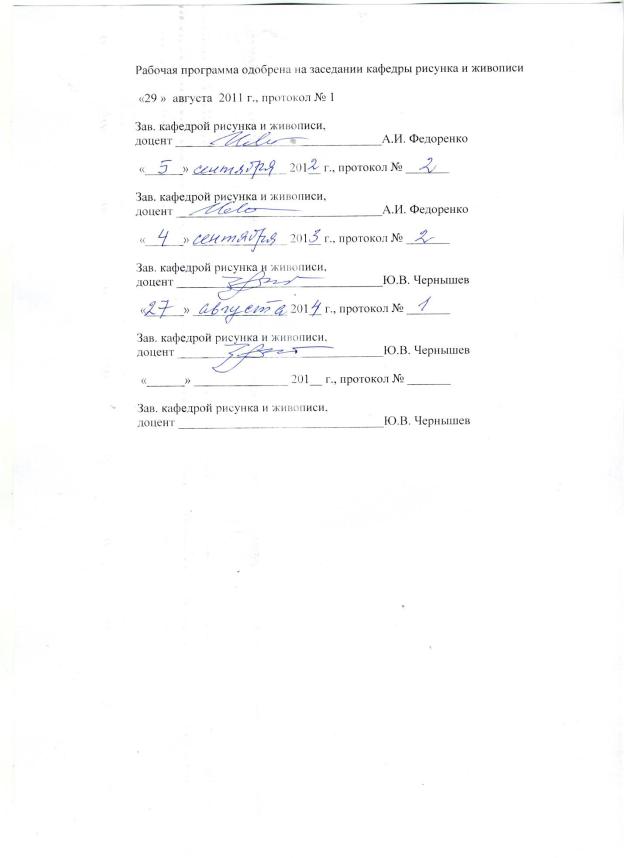 Рабочая программа одобрена на заседании кафедры рисунка и живописи
«29 » августа 2011 г., протокол № 1
Зав. кафедрой рисунка и живописи,
доцент ______ А.И. Федоренко
« 5 » сентября 2012 г., протокол № 2
Зав. кафедрой рисунка и живописи,
доцент ______ А.И. Федоренко
« 4 » сентября 2013 г., протокол № 2
Зав. кафедрой рисунка и живописи,
доцент ______ Ю.В. Чернышев
«27 » августа 2014 г., протокол № 1
Зав. кафедрой рисунка и живописи,
доцент ______ Ю.В. Чернышев
«______» _______________ 201__ г., протокол № _______
Зав. кафедрой рисунка и живописи,
доцент ______ Ю.В. Чернышев